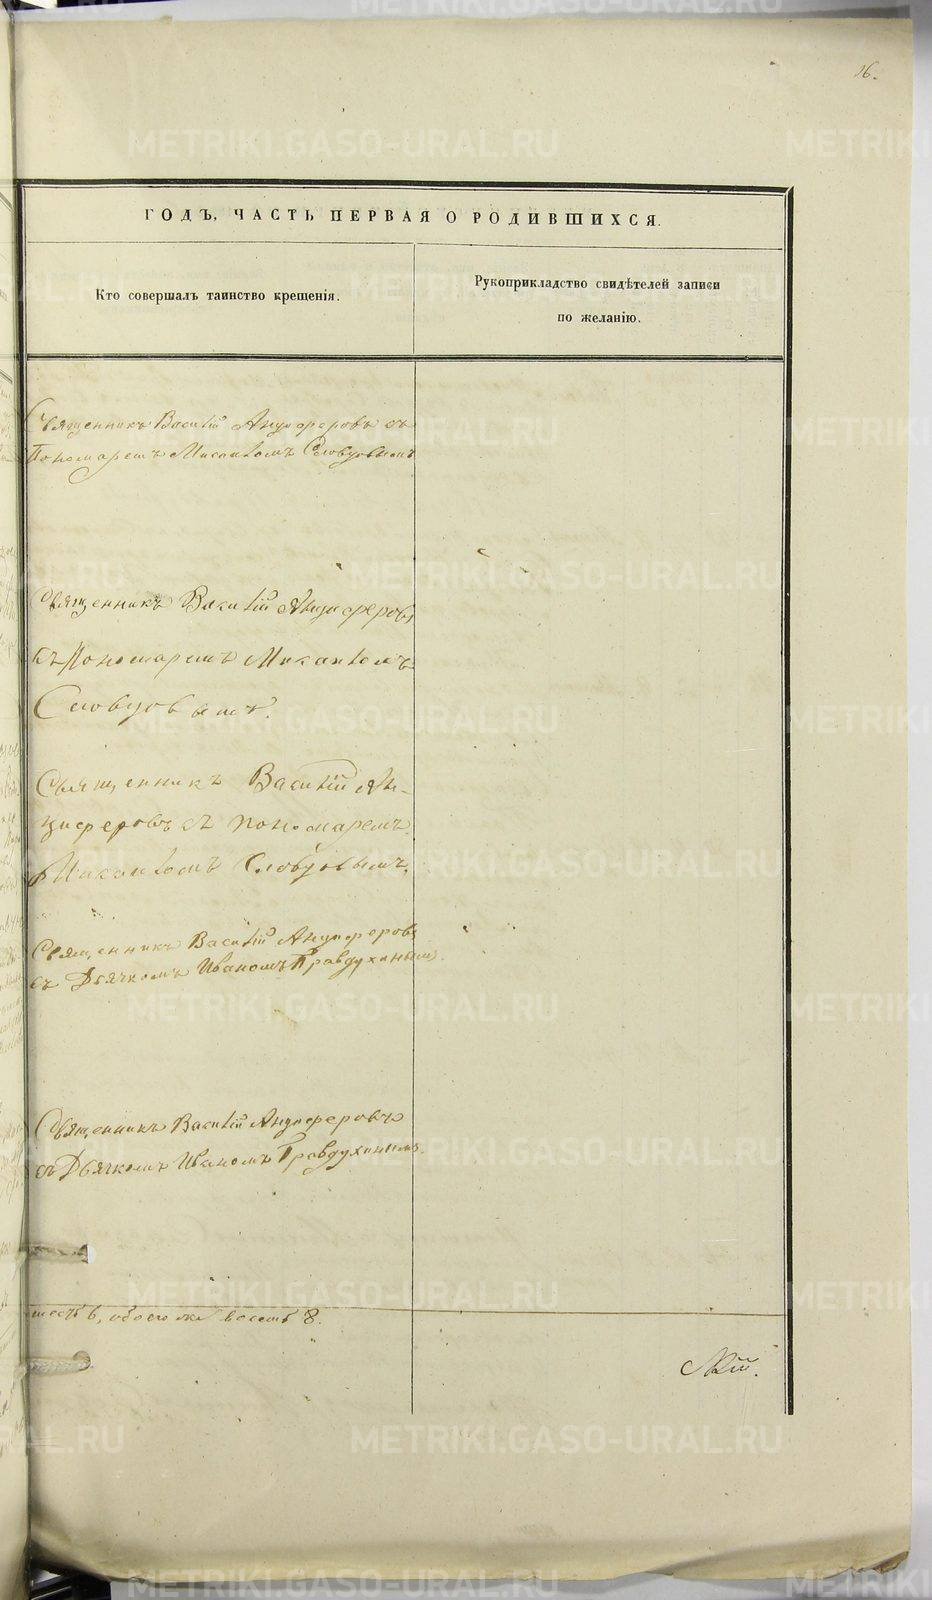 16.
ГОДЪ, ЧАСТЬ ПЕРВАЯ О РОДИВШИХСЯ.
Кто совершалъ таинство крещенія.
Рукоприкладство свидѣтелей записи
по желанію.
Священникъ Василій Анциферовъ съ
Пономаремъ Михаиломъ Словцовымъ
Священникъ Василій Анциферовъ
съ Пономаремъ Михаиломъ
Словцовымъ.
Священникъ Василій Ан-
циферовъ съ пономаремъ
Михаиломъ Словцовымъ.
Священникъ Василій Анциферовъ
съ Дьячкомъ Иваномъ Правдухинымъ.
Священникъ Василій Анциферовъ
съ Дьячкомъ Иваномъ Правдухинымъ.
шесть 6, обоего же восемь 8.
METRIKI.GASO-URAL.RU